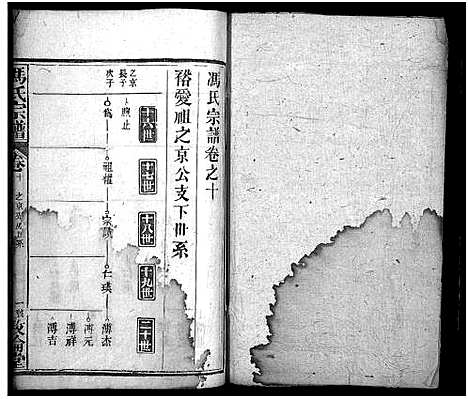 馮氏宗譜卷之十
裕愛祖之京公支下世系
十六世
十七世
十八世
十九世
二十世
之京長子
煦止
次子
祖權
宗
仁瑛
溥杰
溥元
溥吉
馮氏宗譜
卷十
之京公支下世系
一
敦倫堂